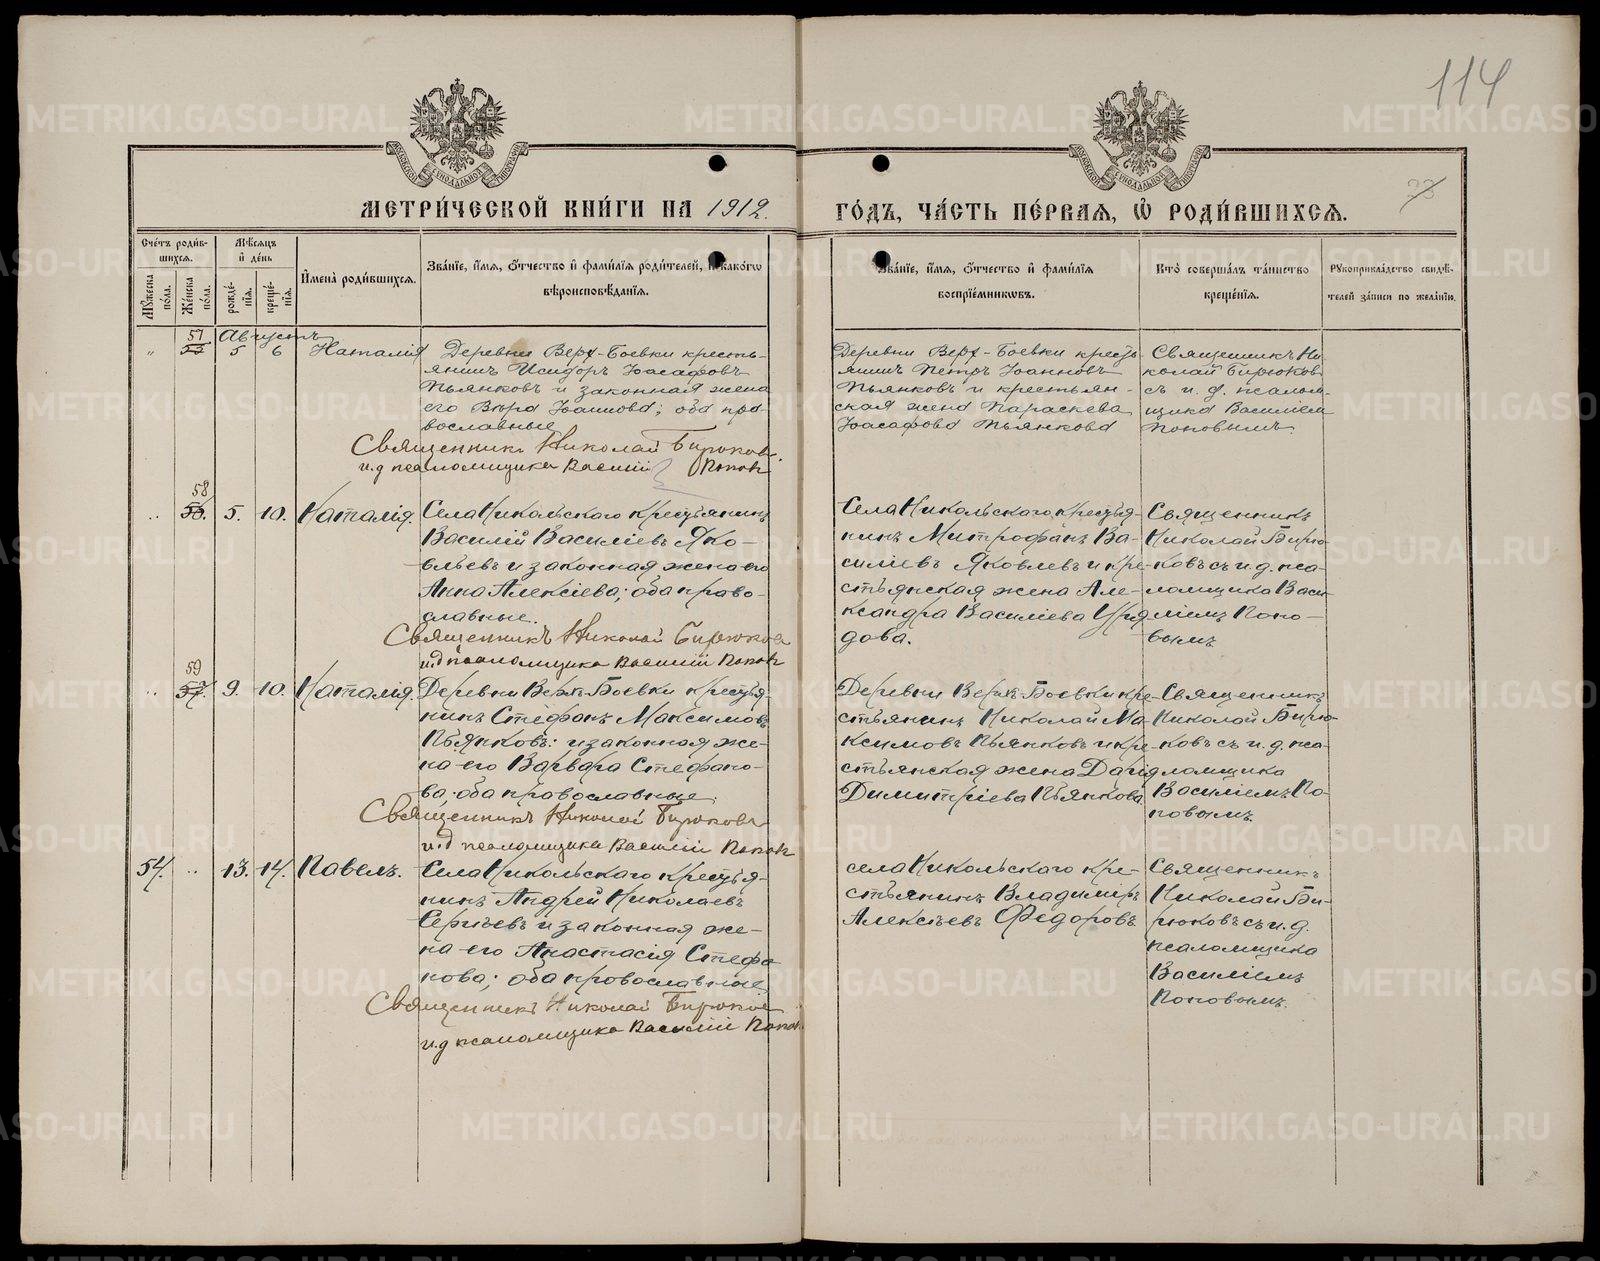 114
МЕТРИ́ЧЕСКОЙ КНИ́ГИ НА 1912.
ГО́ДЪ, ЧА́СТЬ ПЕ́РВАЯ, Ѡ҆ РОДИ́ВШИХСЯ.
Сче́тъ роди́в-
шихся.
Мꙋ́жеска по́ла.
Же́нска по́ла.
Мѣ́сяцъ
и҆ де́нь
рожде́-
нїя.
креще́-
нїя.
И҆мена̀ роди́вшихся.
Зва́нїе, и҆́мя, ѻ҆́тчество и҆ фами́лїя роди́телей, и҆ како́гѡ
вѣроисповѣ́данїя.
Зва́нїе, и҆́мя, ѻ҆́тчество и҆ фами́лїя
воспрїе́мникѡвъ.
Кто̀ соверша́лъ та́инство
креще́нїя.
Рꙋкоприкла́дство свидѣ́-
телей за́писи по жела́нїю.
Августъ
57
5 6 Наталія
Деревни Верх-Боевки кресть-
янинъ Исидоръ Іоасафовъ
Пьянковъ и законная жена
его Вѣра Іоаннова; оба пра-
вославные
Священникъ Николай Бирюковъ.
и.д псаломщика Василій Поповъ
Деревни Верх-Боевки кресть-
янинъ Петръ Іоанновъ
Пьянковъ и крестьян-
ская жена Параскева
Іоасафова Пьянкова
Священникъ Ни-
колай Бирюковъ
съ и. д. псалом-
щика Василіем
Поповымъ.
58
5. 10. Наталія.
Села Никольскаго крестьянинъ
Василій Василіевъ Яко-
влевъ и законная жена его
Анна Алексіева; оба право-
славные.
Священникъ Николай Бирюковъ
и.д псаломщика Василій Поповъ
Села Никольскаго крестья-
нинъ Митрофанъ Ва-
силіевъ Яковлевъ и кре-
стьянская жена Але-
ксандра Василіева
дова.
Священникъ
Николай Бирю-
ковъ съ и. д. пса-
ломщика Васи-
ліемъ Попо-
вымъ
59
9. 10. Наталія.
Деревни Верх-Боевки крестья-
нинъ Стефанъ Максимовъ
Пьянковъ: и законная же-
на его Варвара Стефано-
ва; оба православные.
Священникъ Николай Бирюковъ
и.д псаломщика Василій Поповъ
Деревни Верх-Боевки кре-
стьянинъ Николай Ма-
ксимовъ Пьянковъ и кре-
стьянская жена Дарія
Димитріева Пьянкова
Священникъ
Николай Бирю-
ковъ съ и. д. пса-
ломщика
Василіемъ По-
повымъ.
54. 13. 14. Павелъ.
Села Никольскаго крестья-
нинъ Андрей Николаевъ
Сергѣевъ и законная же-
на его Анастасія Стефа-
нова; оба православные.
Священникъ Николай Бирюков
и.д псаломщика Василій Поповъ
села Никольскаго кре-
стьянинъ Владимиръ
Алексѣевъ Федоровъ.
Священникъ
Николай Би-
рюковъ съ и. д.
псаломщика
Василіемъ
Поповымъ.
METRIKI.GASO-URAL.RU